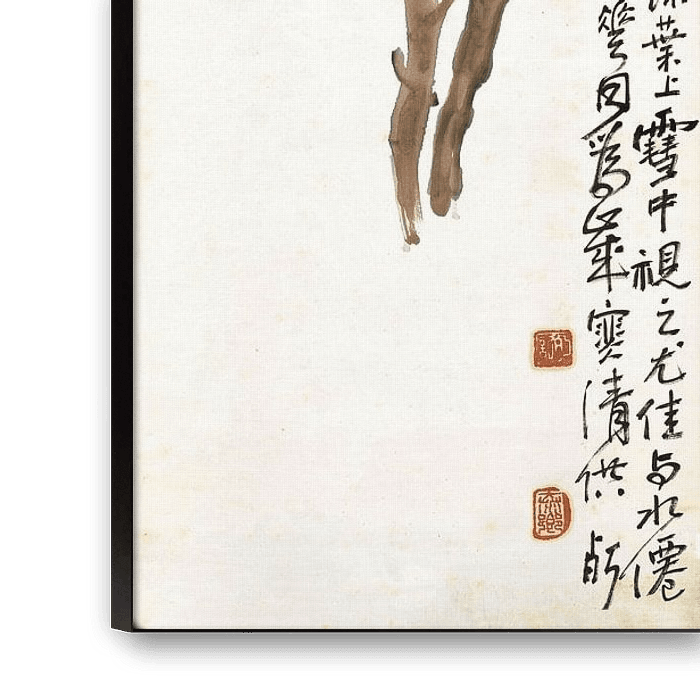 葉上雪中視之尤佳与水僊
花同為歲寒清供師